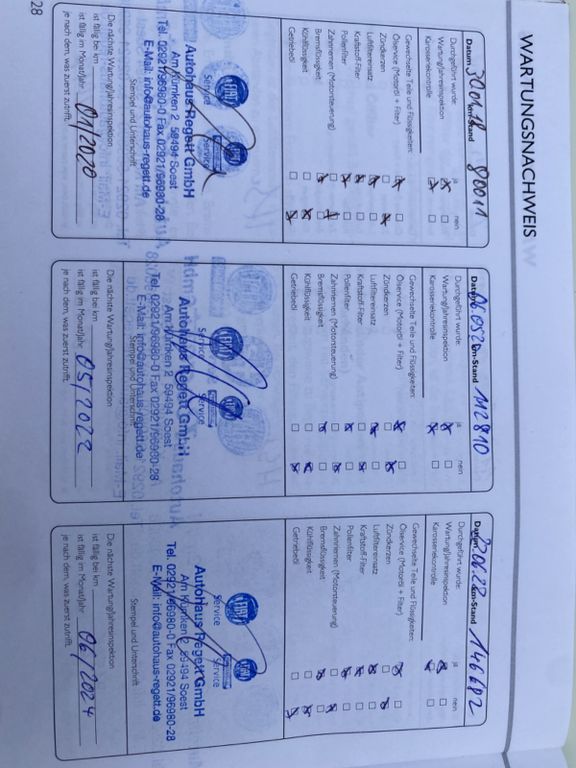 WARTUNGSNACHWEIS
Datum 30.01.18 km-Stand 80011
Durchgeführt wurde: ja nein
Wartung/Jahresinspektion
Karosseriekontrolle
Gewechselte Teile und Flüssigkeiten:
Ölservice (Motoröl + Filter)
Zündkerzen
Luftfiltereinsatz
Kraftstoff-Filter
Pollenfilter
Zahnriemen (Motorsteuerung)
Bremsflüssigkeit
Kühlflüssigkeit
Getriebeöl
FIAT Service Service
Autohaus Regett GmbH
Am Kümken 2 59494 Soest
Tel. 02921/96980-0 Fax 02921/96980-28
E-Mail: info@autohaus-regett.de
Stempel und Unterschrift
Die nächste Wartung/Jahresinspektion
ist fällig bei km
ist fällig im Monat/Jahr 01/2020
je nach dem, was zuerst zutrifft.
Datum km-Stand 112810
Durchgeführt wurde: ja nein
Wartung/Jahresinspektion
Karosseriekontrolle
Gewechselte Teile und Flüssigkeiten:
Ölservice (Motoröl + Filter)
Zündkerzen
Luftfiltereinsatz
Kraftstoff-Filter
Pollenfilter
Zahnriemen (Motorsteuerung)
Bremsflüssigkeit
Kühlflüssigkeit
Getriebeöl
FIAT Service Service
Autohaus Regett GmbH
Am Kümken 2 59494 Soest
Tel. 02921/96980-0 Fax 02921/96980-28
E-Mail: info@autohaus-regett.de
Stempel und Unterschrift
Die nächste Wartung/Jahresinspektion
ist fällig bei km
ist fällig im Monat/Jahr 05/2022
je nach dem, was zuerst zutrifft.
Datum km-Stand 146682
Durchgeführt wurde: ja nein
Wartung/Jahresinspektion
Karosseriekontrolle
Gewechselte Teile und Flüssigkeiten:
Ölservice (Motoröl + Filter)
Zündkerzen
Luftfiltereinsatz
Kraftstoff-Filter
Pollenfilter
Zahnriemen (Motorsteuerung)
Bremsflüssigkeit
Kühlflüssigkeit
Getriebeöl
FIAT Service Service
Autohaus Regett GmbH
Am Kümken 2 59494 Soest
Tel. 02921/96980-0 Fax 02921/96980-28
E-Mail: info@autohaus-regett.de
Stempel und Unterschrift
Die nächste Wartung/Jahresinspektion
ist fällig bei km
ist fällig im Monat/Jahr 06/2024
je nach dem, was zuerst zutrifft.
28